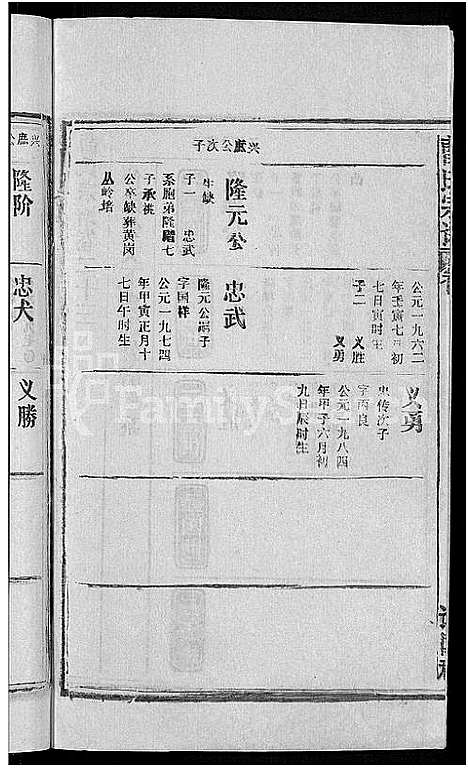 兴庶公次子
隆元公
生缺
子一 忠武
系胞弟隆阶七
子承祧
公卒缺葬黄岗
丛岭培
公元一九六二
年壬寅七月初
七日寅时生
子二 义胜
义勇
忠武
隆元公嗣子
字国样
公元一九七四
年甲寅正月十
七日午时生
义勇
忠传次子
字丙良
公元一九八四
年甲子六月初
九日辰时生
隆阶
忠犬
义勝
FamilySe